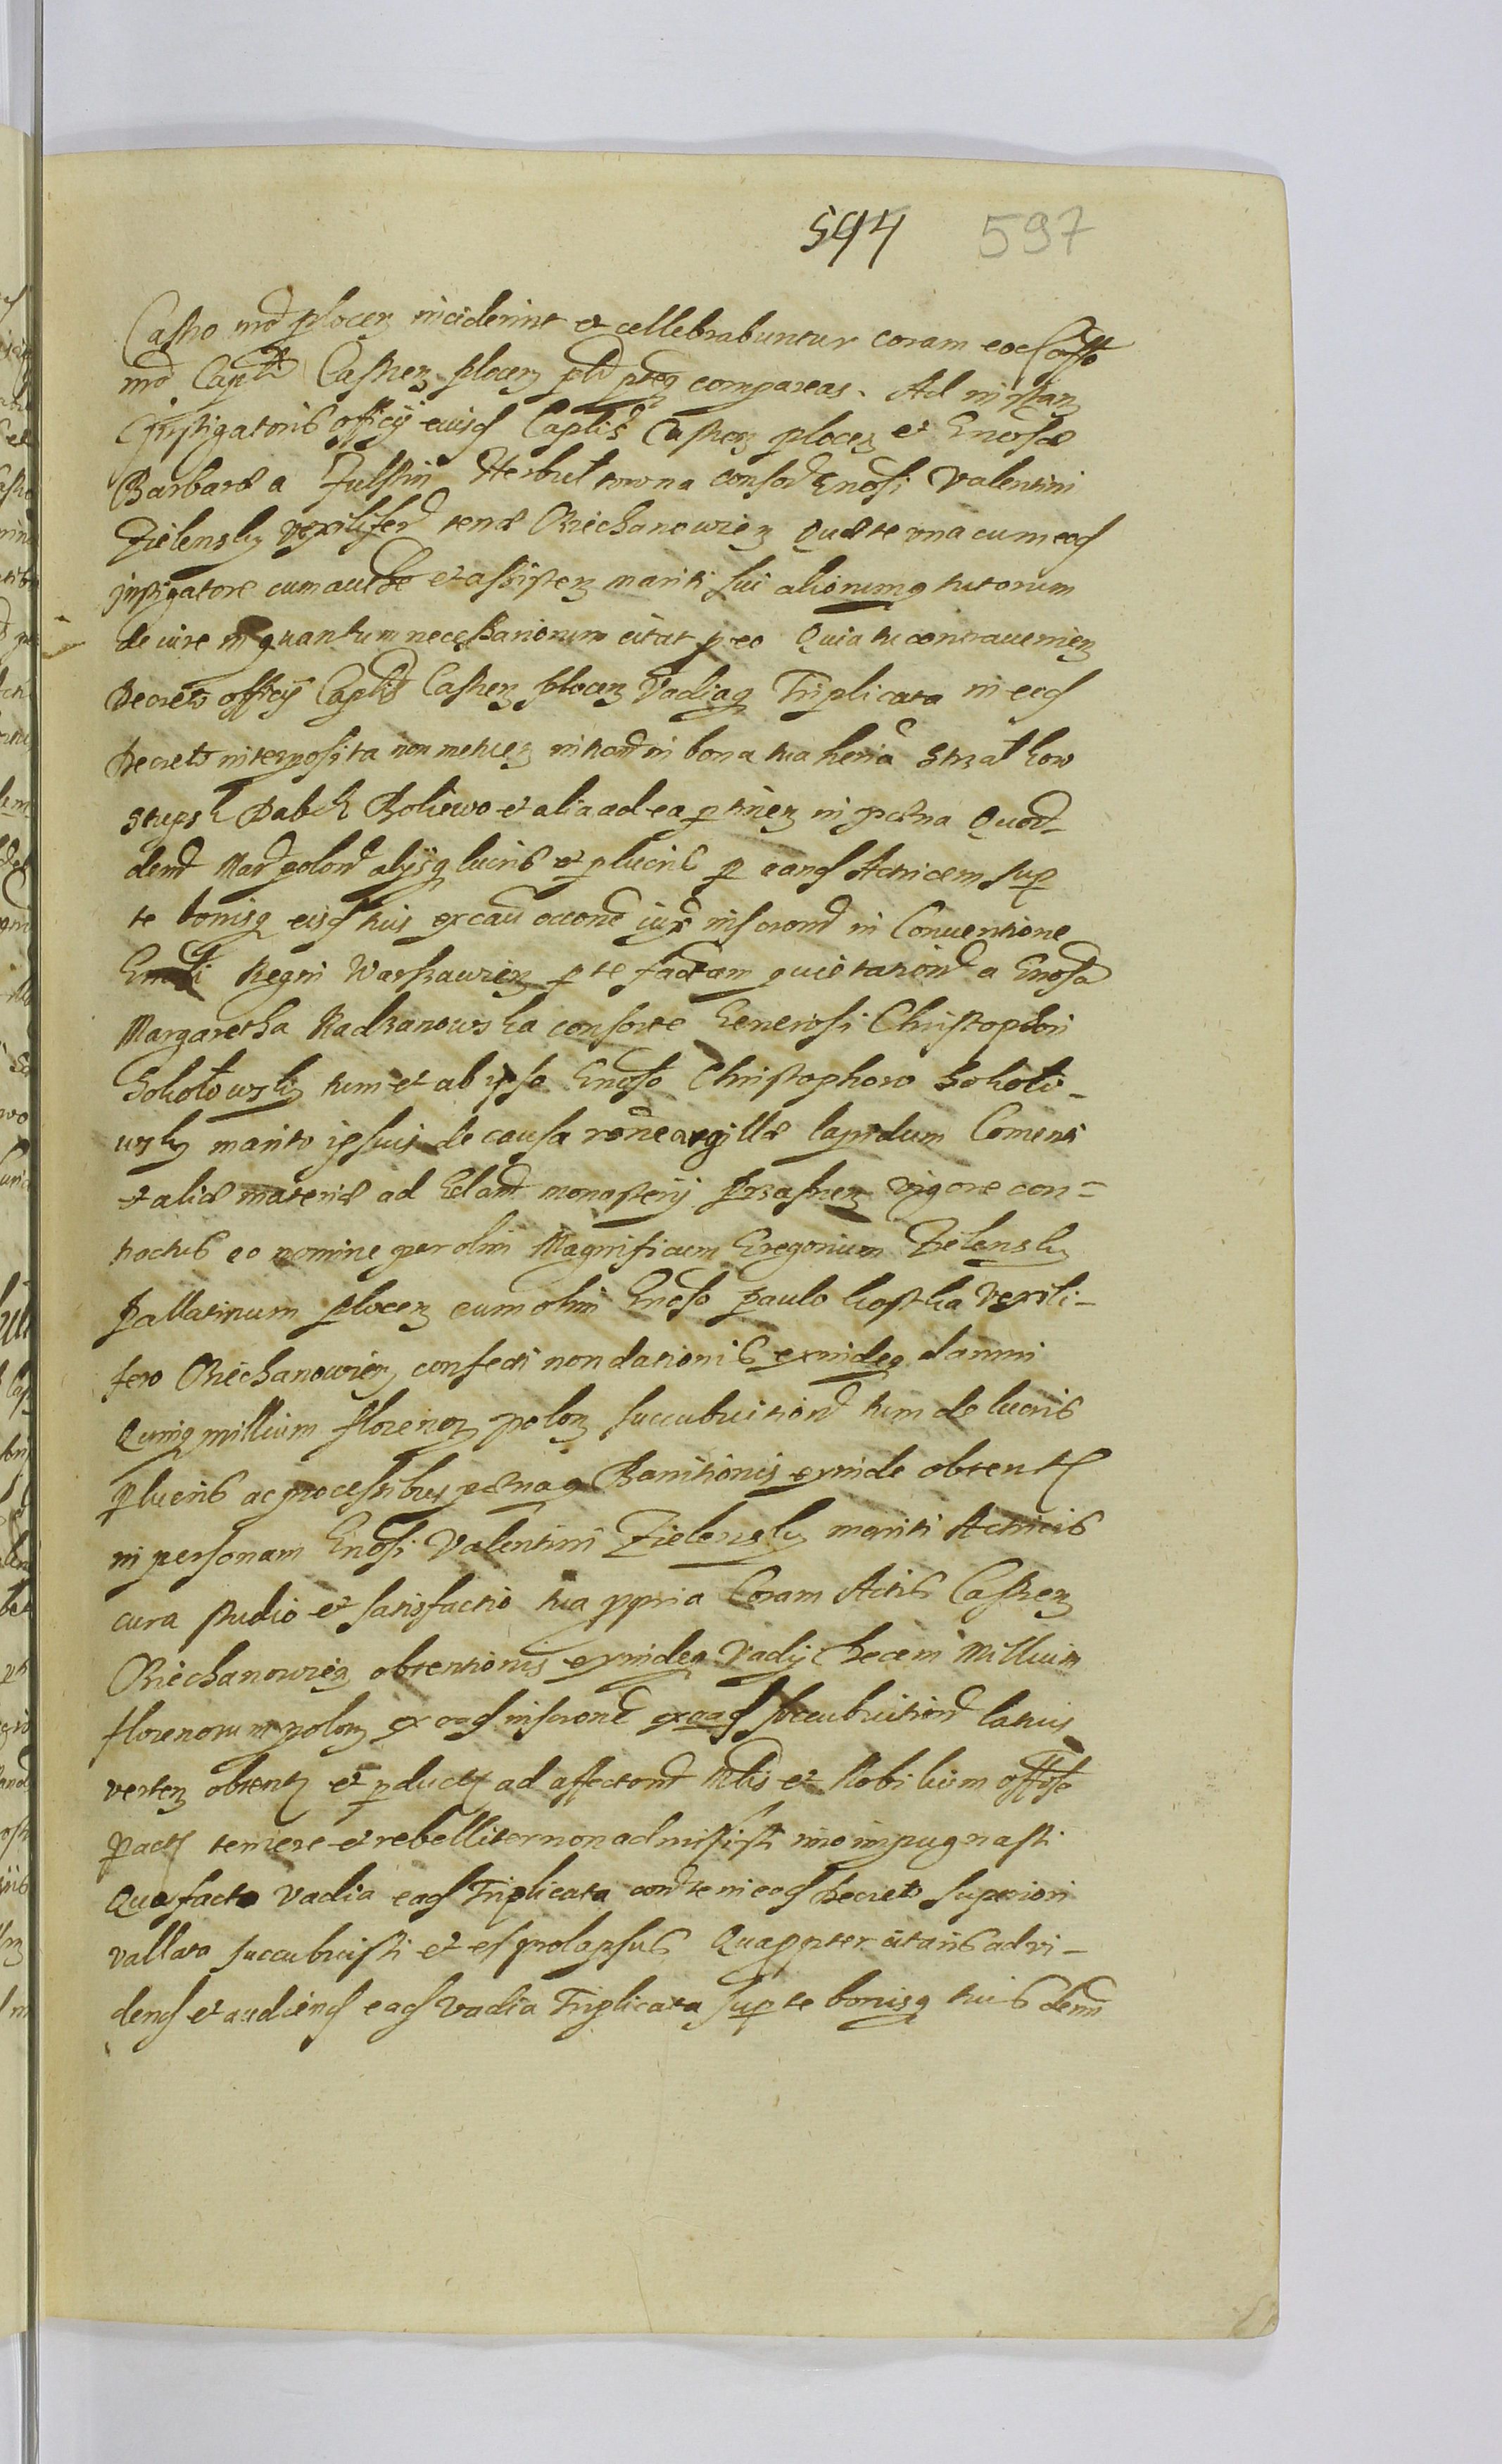 594 597
Castro nro plocen inciderint et cellebrabuntur coram eod Offo
nro Captli Castren plocen pld pteq compareas. Ad instan
Instigatoris officij eiusd Captlis Castren plocen et Gnosæ
Barbaræ a Fulstin Herbultowna consor Gnosi Valentini
Zielensky vexilifer terræ Ciechanowien Quæ te vna cum eod
instigatore cum authe et assisten mariti sui aliorumq tutorum
de iure in quantum necessariorum citat p eo Quia tu contravenien
Decreto officij Captlis Castren plocen Vadiaq Triplicata in eod
Decreto interposita non metuen introm in bona tua heria
Boliewo et alia ad ea ptinen in pæna Quad
dena Mar polon alysq lucris et plucris p eand Actricem sup
te bonisq eisd tuis ex cau occone iux inscrond in Conuentione
Gnali Regni Warszawien p te factam quietationd a Gnosa
Margaretha Radzanowska consorte Generosi Christophori
Sokolowsky tum et ab ipso Gnoso Christophoro Sokolo-
wsky marito ipsius de causa rone argillæ lapidum Cementi
et aliæ materiæ ad monasterij Przasnen vigore con=
tractus eo nomine per olim Magnificum Gregorium Zielensky
Pallatinum plocen cum olim Gnoso paulo kostka Vexili-
fero Ciechanowien confecti non dationis exindeq damni
Quinq millium florenor polon succubuitiond tum de lucris
plucris ac processibus pænaq Banitionis exinde obtent
in personam Gnosi Valentini Zielensky mariti Actricis
cura studio et satisfactio tua ppria Coram Actis Castren
Ciechanowien obtentionis exindeq Vadij Decem Millium
florenorum polon ex ead inscrone exead succubuitiond latius
verten obtent et pduct ad affectand Mlis et Nobilium offoso
pact temere et rebelliter non admisisti imo impugnasti
Quo facto Vadia ead Triplicata contr te in eod Decreto superiori
vallata succubuisti et es prolapsus Quappter citaris ad vi-
dend et audiend ead Vadia Triplicata sup te bonisq tuis demn